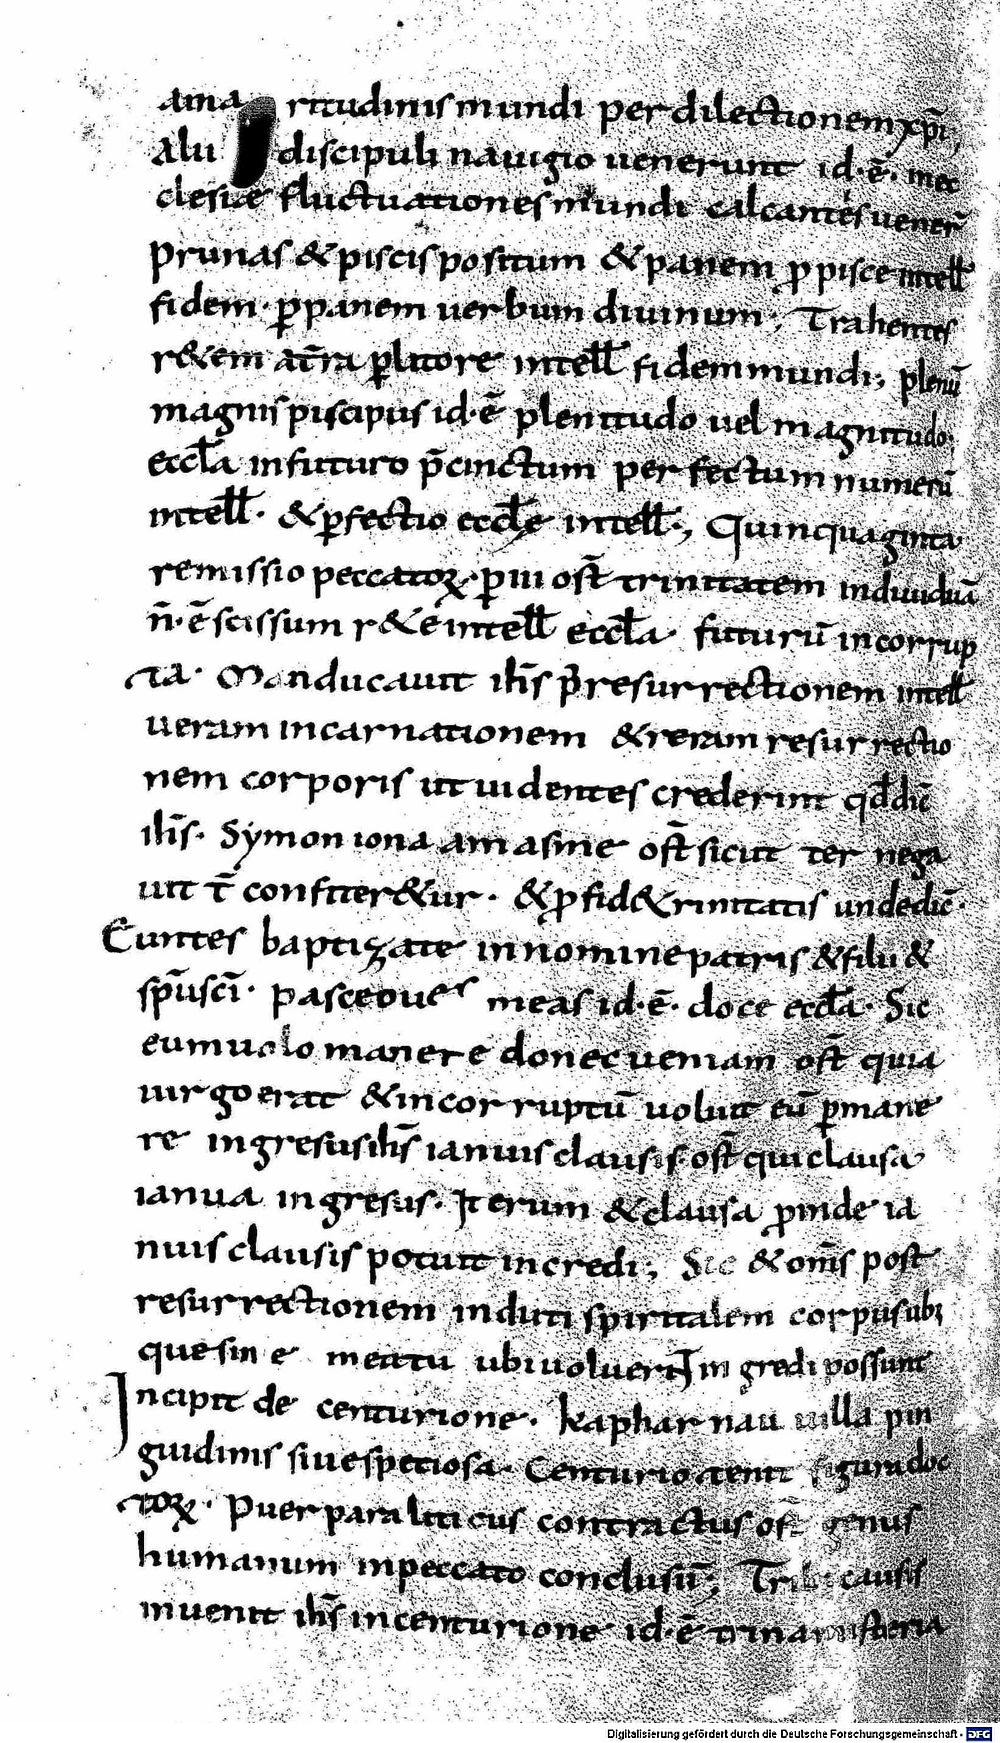 ama ritudinis mundi per dilectionem xp̄i;
Alii discipuli nauigio uenerunt id·ē· inec
clesiae fluctuationes mundi calcantes uener̄
Prunas & piscis positum & panem p pisce intell̄
fidem· p panem uerbum diuinum; Trahentes
r&em at̄ra p litore intell̄ fidem mundi; plenū
magnis piscipus id·ē plenitudo uel magnitudo;
eccl̄a infuturo p̄cinctum perfectum numerū
intell̄· & pfectio eccl̄ę intell̄·; Quinquaginta
remissio peccatoꝝ· p iii ost̄ trinitatem indiuiduā
n̄·ē scissum r&ē intell̄ eccl̄a· futurū incorrup
ta· Manducauit ih̄s p̄ resurrectionem intell̄
ueram incarnationem & reram resurrectio
nem corporis ut uidentes crederint qd̄ dic̄
ih̄s· Symon iona amas me ost̄ sicut ter nega
uit t̄ confiter&ur· & p fid& rinitatis unde dic̄·
Euntes baptizate in nomine patris & filii &
sp̄u sc̄i· pasce oues meas id·ē· doce eccl̄a· Sic
eum uolo manere donec ueniam ost̄ quia
uirgo erat & incorruptū uoluit eū pmane
re ingresus ih̄s ianuis clausis ost̄ qui clausa
ianua ingresus· Iterum & clausa pinde ia
nuis clausis potuit incredi; Sic & om̄s post
resurrectionem induti spiritalem corpus ubi
que sine meatu ubi uoluerit ingredi possunt
Incipit de centurione· kapharnau uilla pin
guidinis siue speciosa· Centurio tenit figura doc
toꝝ· Puer paraliticus contractus ost̄ genus
humanum inpeccato conclusū; Tribus causis
inuenit ih̄s incenturione id·ē trina misteria
Digitalisierung gefördert durch die Deutsche Forschungsgemeinschaft - DFG